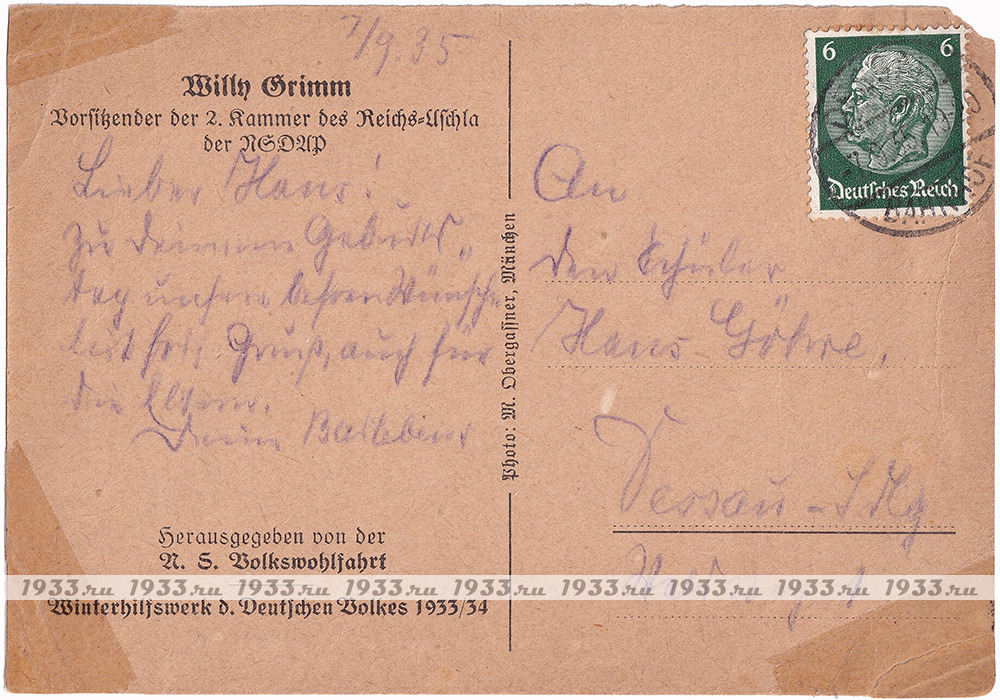 7/9.35
Willy Grimm
Vorsitzender der 2. Kammer des Reichs-Uschla
der NSDAP
Lieber Hans!
Zu Deinem Geburts„
tag unsere besten Wünsche
Gruß, auch für
die Eltern.
Deine
Herausgegeben von der
N. S. Volkswohlfahrt
Winterhilfswerk d. Deutschen Volkes 1933/34
Photo: M. Obergassner, München
6 6
Deutsches Reich
BAHNHOF
An
den Schüler
Hans
Dessau
1933.ru 1933.ru 1933.ru 1933.ru 1933.ru 1933.ru 1933.ru 1933.ru 1933.ru